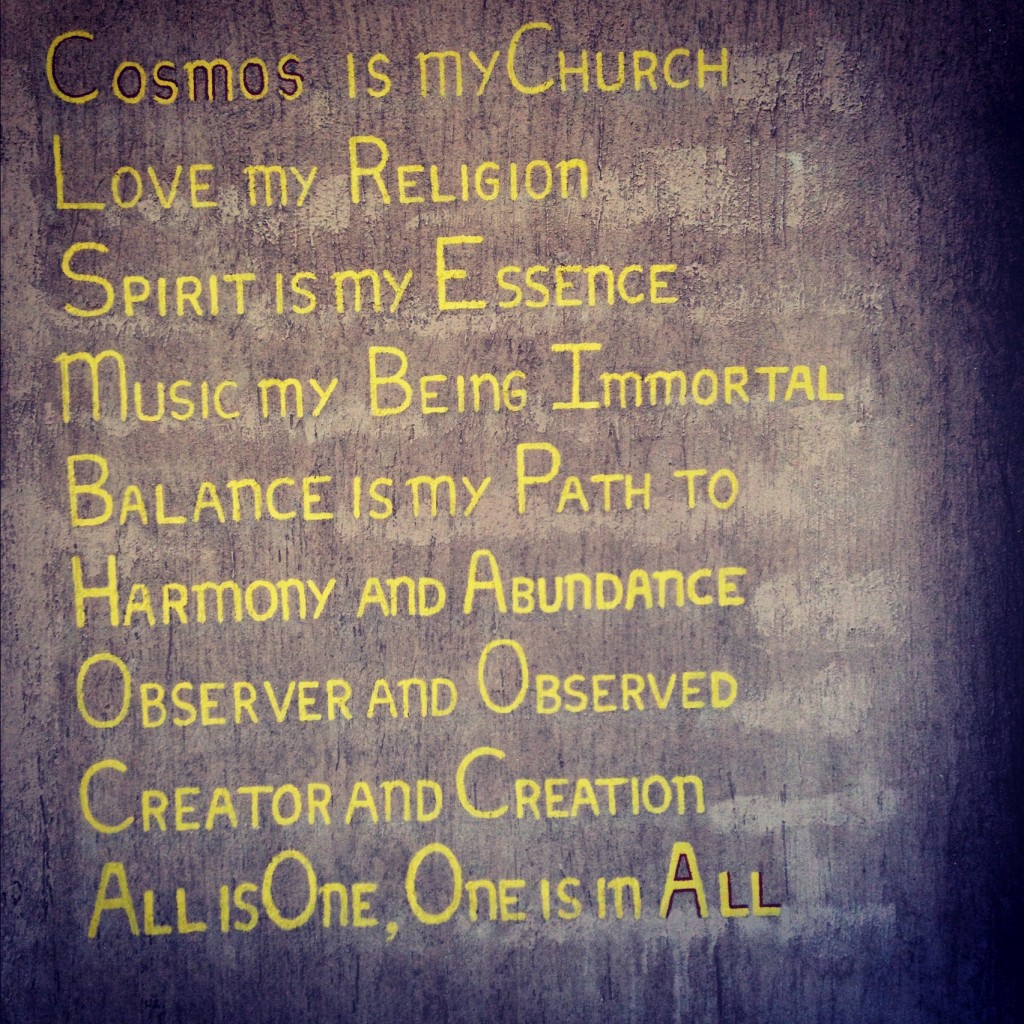 Cosmos is my Church
Love my Religion
Spirit is my Essence
Music my Being Immortal
Balance is my Path to
Harmony and Abundance
Observer and Observed
Creator and Creation
All is One, One is in All